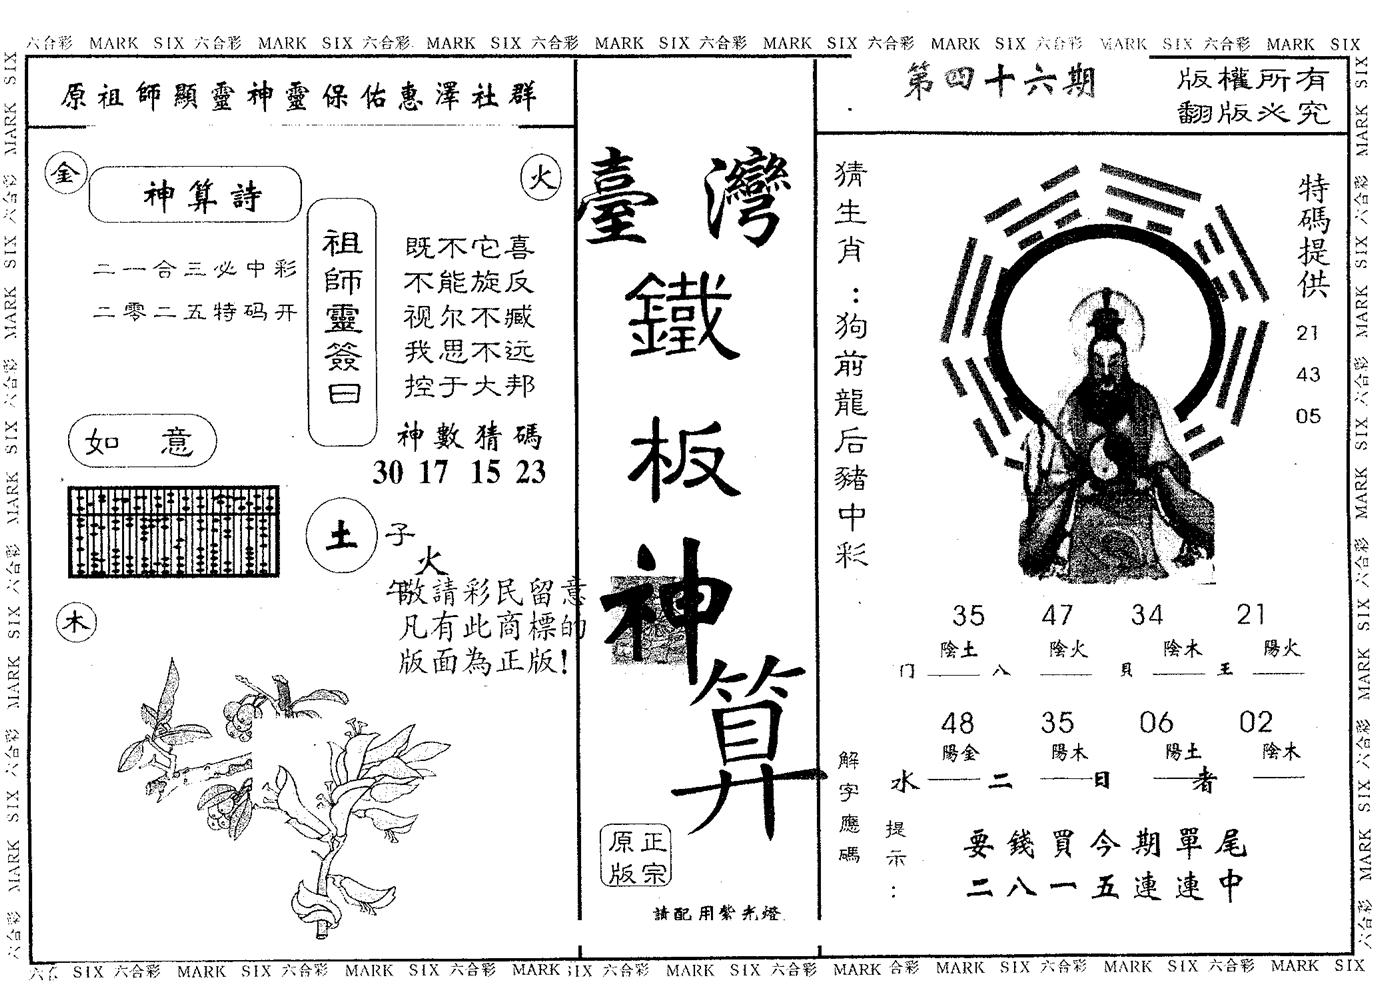 六合彩 MARK SIX 六合彩 MARK SIX 六合彩 MARK SIX 六合彩 MARK SIX 六合彩 MARK SIX 六合彩 MARK SIX 六合彩 MARK SIX 六合彩 MARK SIX
原祖師顯靈神靈保佑惠澤社群
金
火
神算詩
二一合三必中彩
二零二五特码开
祖師靈簽曰
既不它喜
不能旋反
视尔不臧
我思不远
控于大邦
神數猜碼
30 17 15 23
如意
土
子
火
午
敬請彩民留意
凡有此商標的
版面為正版!
木
臺灣
鐵
板
神
算
正宗
原版
請配用紫光燈
第四十六期
版權所有
翻版必究
猜生肖:狗前龍后豬中彩
特碼提供
21
43
05
35 47 34 21
陰土 陰火 陰木 陽火
门 八 貝 王
48 35 06 02
陽金 陽木 陽土 陰木
水 二 日 者
解字應碼
提示:
要錢買今期單尾
二八一五連連中
六合彩 SIX 六合彩 MARK SIX 六合彩 MARK SIX 六合彩 MARK SIX 六合彩 MARK SIX 六合彩 MARK 合彩 MARK SIX 六合彩 MARK SIX 六合彩 MARK SIX